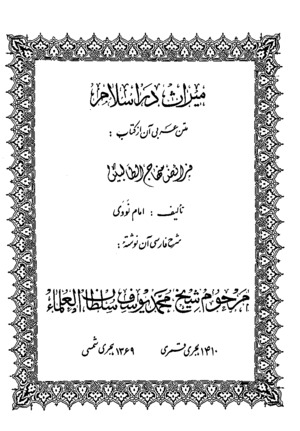 میراث در اسلام
متن عربی آن از کتاب :
فرائض منهاج الطالبین
تألیف : امام نووی
شرح فارسی آن نوشته :
مرحوم شیخ محمد یوسف سلطان العلماء
۱۴۱۰ هجری قمری ۱۳۶۹ هجری شمسی